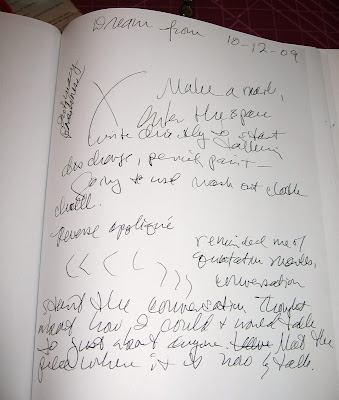 Dream from 10-12-09
Make a mark,
Enter the space
write directly to start
talking
discharge, pencil, paint —
Going to use wash out cloth
Reverse appliqué
reminded me of
quotation marks,
conversation
start the conversation thought
about how I could & would talk
to just about anyone. Meet the
piece where it is now & talk.